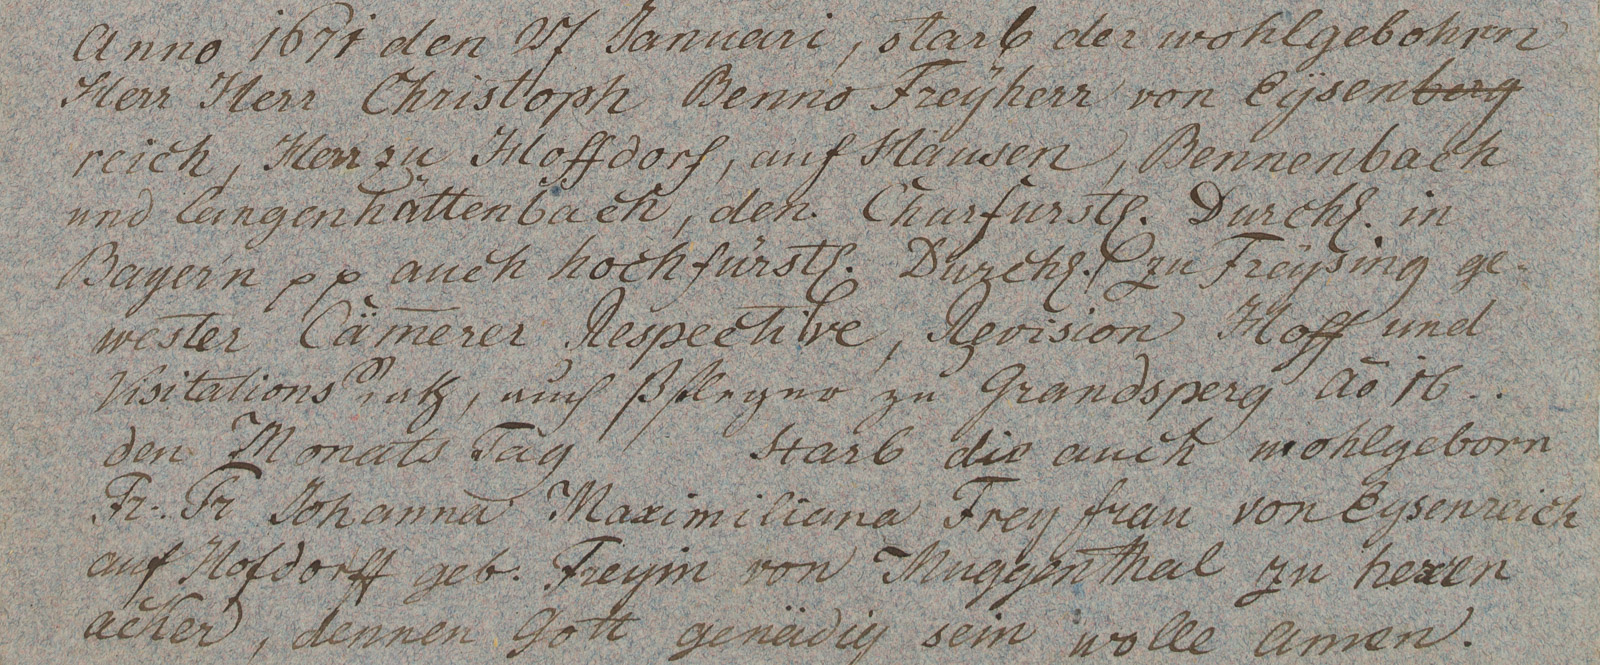 Anno 1671 den 27 Januari, starb der wohlgebohrn
Herr Herr Christoph Benno Freÿherr von Eÿsenberg
reich, Herr zu Hoffdorf, auf Hausen, Bennenbach
und Langenhättenbach, den. Churfürstl. Durchl. in
Bayern pp auch hochfürstl. Durchl. zu Freÿsing ge-
wester Cämerer Respective, Revision Hoff und
Visitations Rath, auch Pfleger zu Grandsperg Ao 16..
den Monats Tag starb die auch wohlgeborn
Fr. Fr Johanna Maximiliana Frey frau von Eysenreich
auf Hofdorff geb. Freyin von Muggenthal zu hexen
acker, dennen Gott genädig sein wolle Amen.